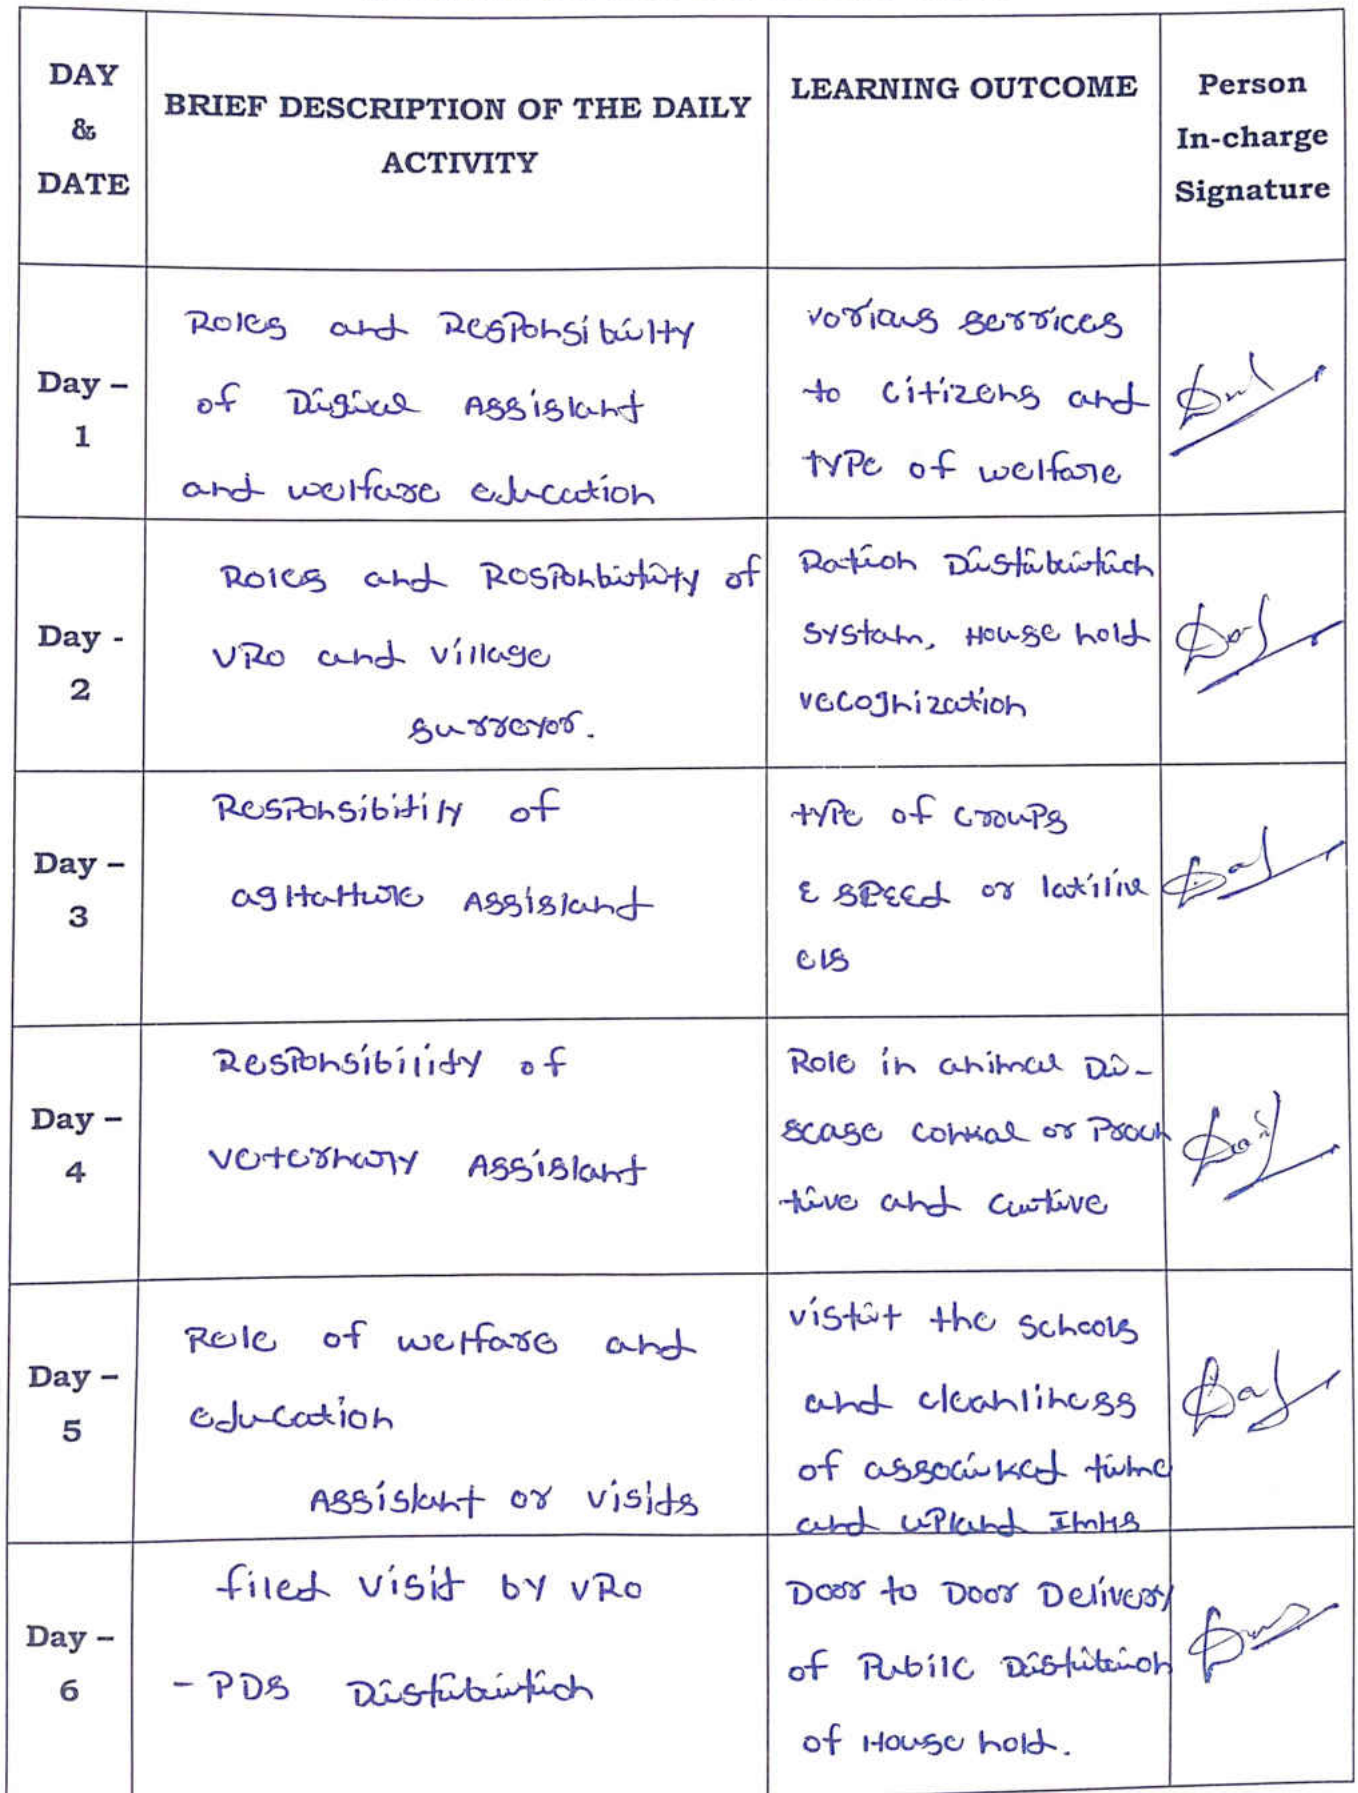 DAY & DATE
BRIEF DESCRIPTION OF THE DAILY ACTIVITY
LEARNING OUTCOME
Person In-charge Signature
Day – 1
Roles and Responsibility
of Digical Assistant
and welfare education
various services
to citizens and
type of welfare
Day - 2
Roles and Resposibility of
VRO and village
surveyor.
Ration Distibution
system, House hold
recognization
Day – 3
Responsibitily of
Assistant
type of croups
or
Day – 4
Responsibility of
veternary Assistant
Role in animal Di-
sease or
tive and curtive
Day – 5
Role of welfare and
education
Assistant or visits
vistit the schools
and cleanliness
of time
and upland
Day – 6
filed visit by VRO
- PDS Distibution
Door to Door Delivery
of Pubilc Distibution
of House hold.